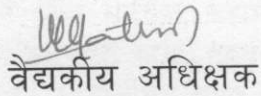 वैद्यकीय अधिक्षक